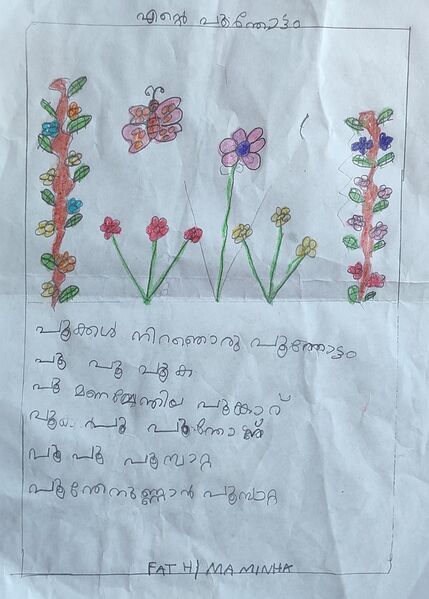 എന്റെ പൂന്തോട്ടം
പൂക്കൾ നിറഞ്ഞൊരു പൂന്തോട്ടം
പൂ പൂ പൂക
പൂ മണമേന്തിയ പൂങ്കാറ്
പൂ പൂ
പൂ പൂ പൂമ്പാറ്റ
പൂന്തേനുണ്ണാൻ പൂമ്പാറ്റ
FATHIMA MINHA